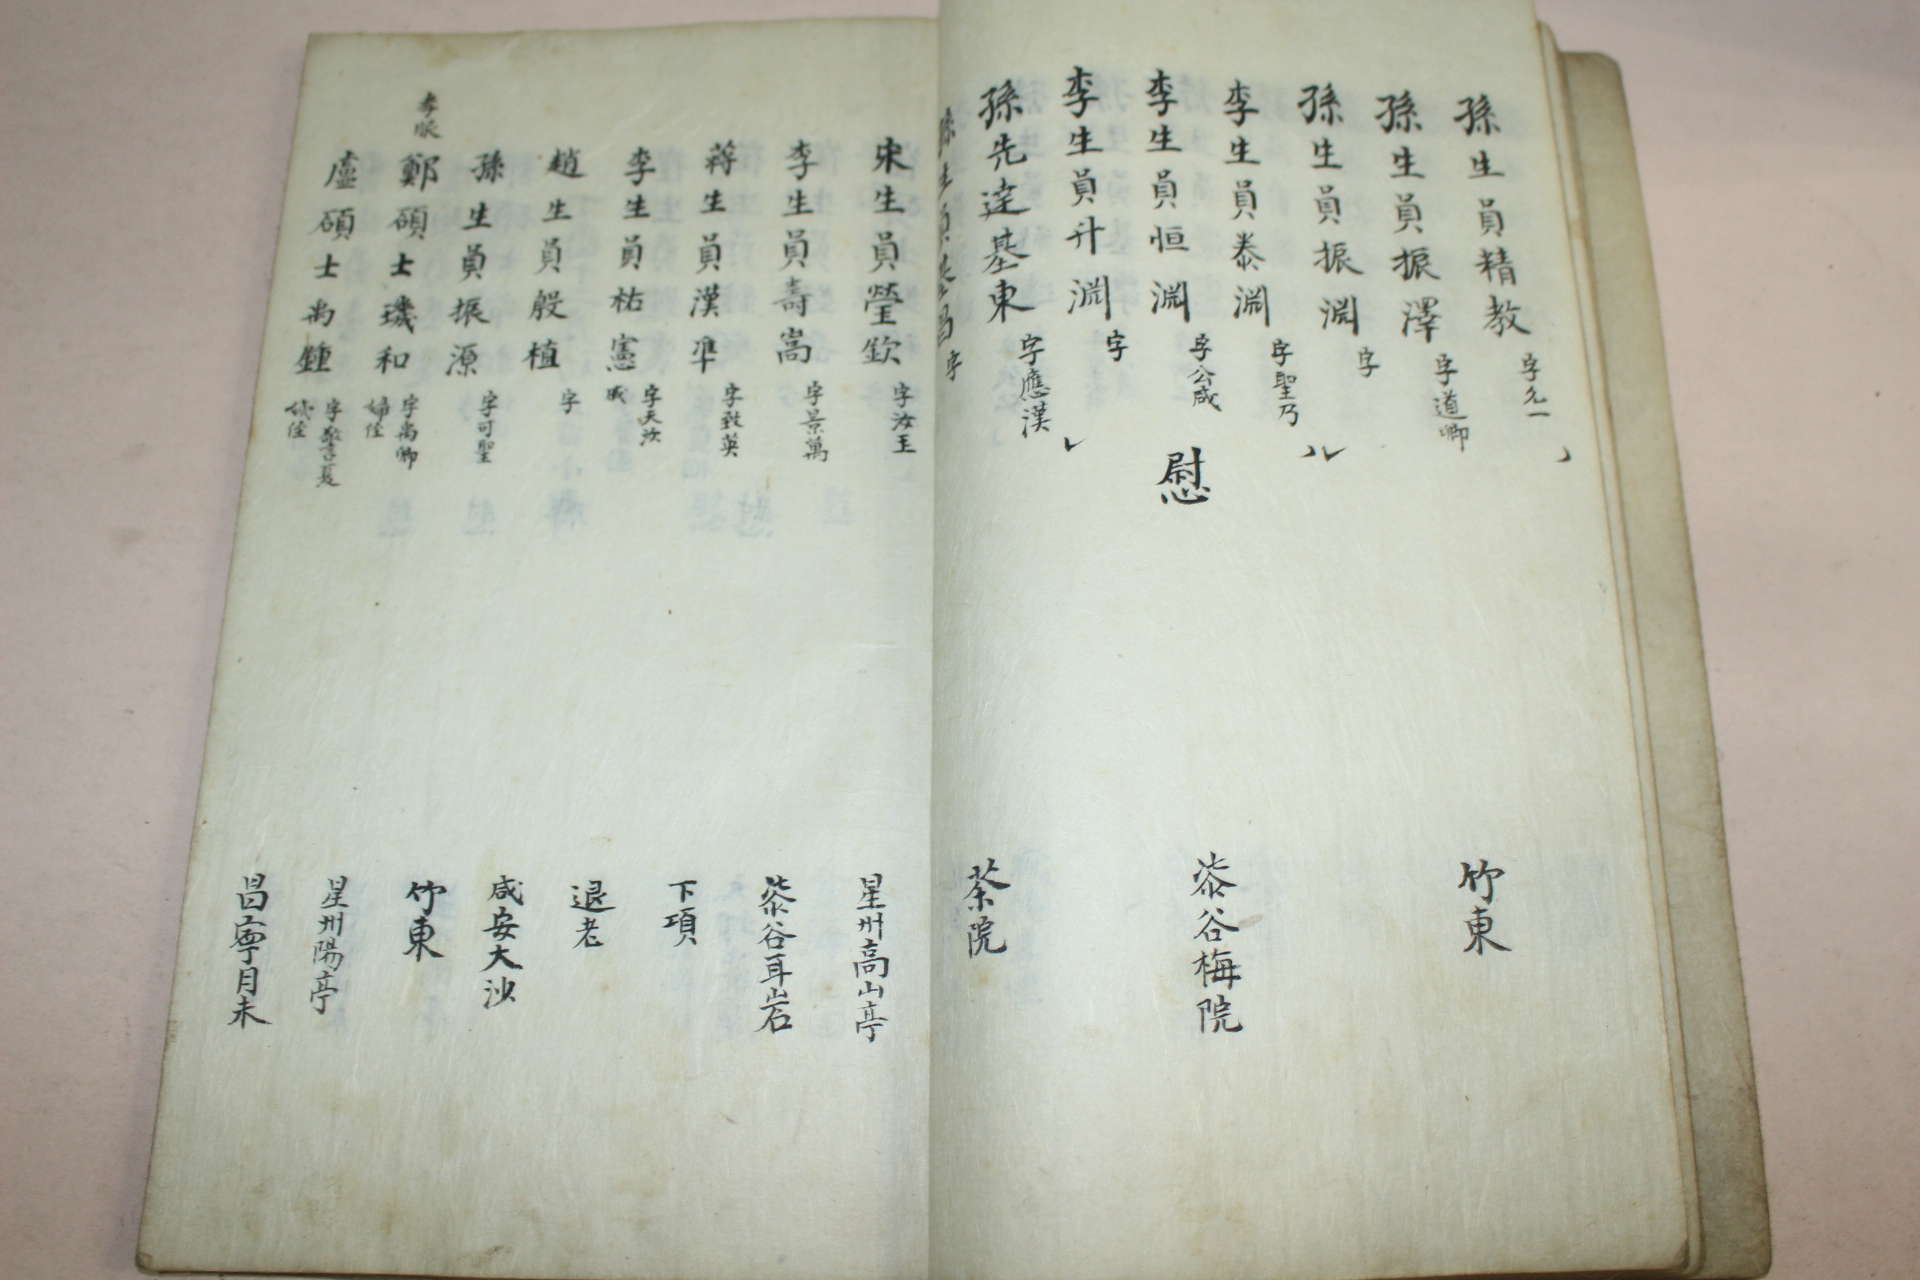 孫生員精教 字允一 竹東
孫生員振澤 字道卿
孫生員振淵 字
李生員泰淵 字聖乃 漆谷梅院
李生員恒淵 字公咸 慰
李生員升淵 字
孫先達基東 字應漢 茶院
孫生員 昌 字
宋生員瑩欽 字汝玉 星州高山亭
李生員壽嵩 字景萬 漆谷耳岩
蔣生員漢準 字致英 下項
李生員祐憲 字天汝 戚 退老
趙生員殷植 字 咸安大沙
孫生員振源 字可聖 竹東
李服
鄭碩士璣和 字禹卿 婦侄 星州陽亭
盧碩士禹鍾 字敬夏 侄 昌寧月末